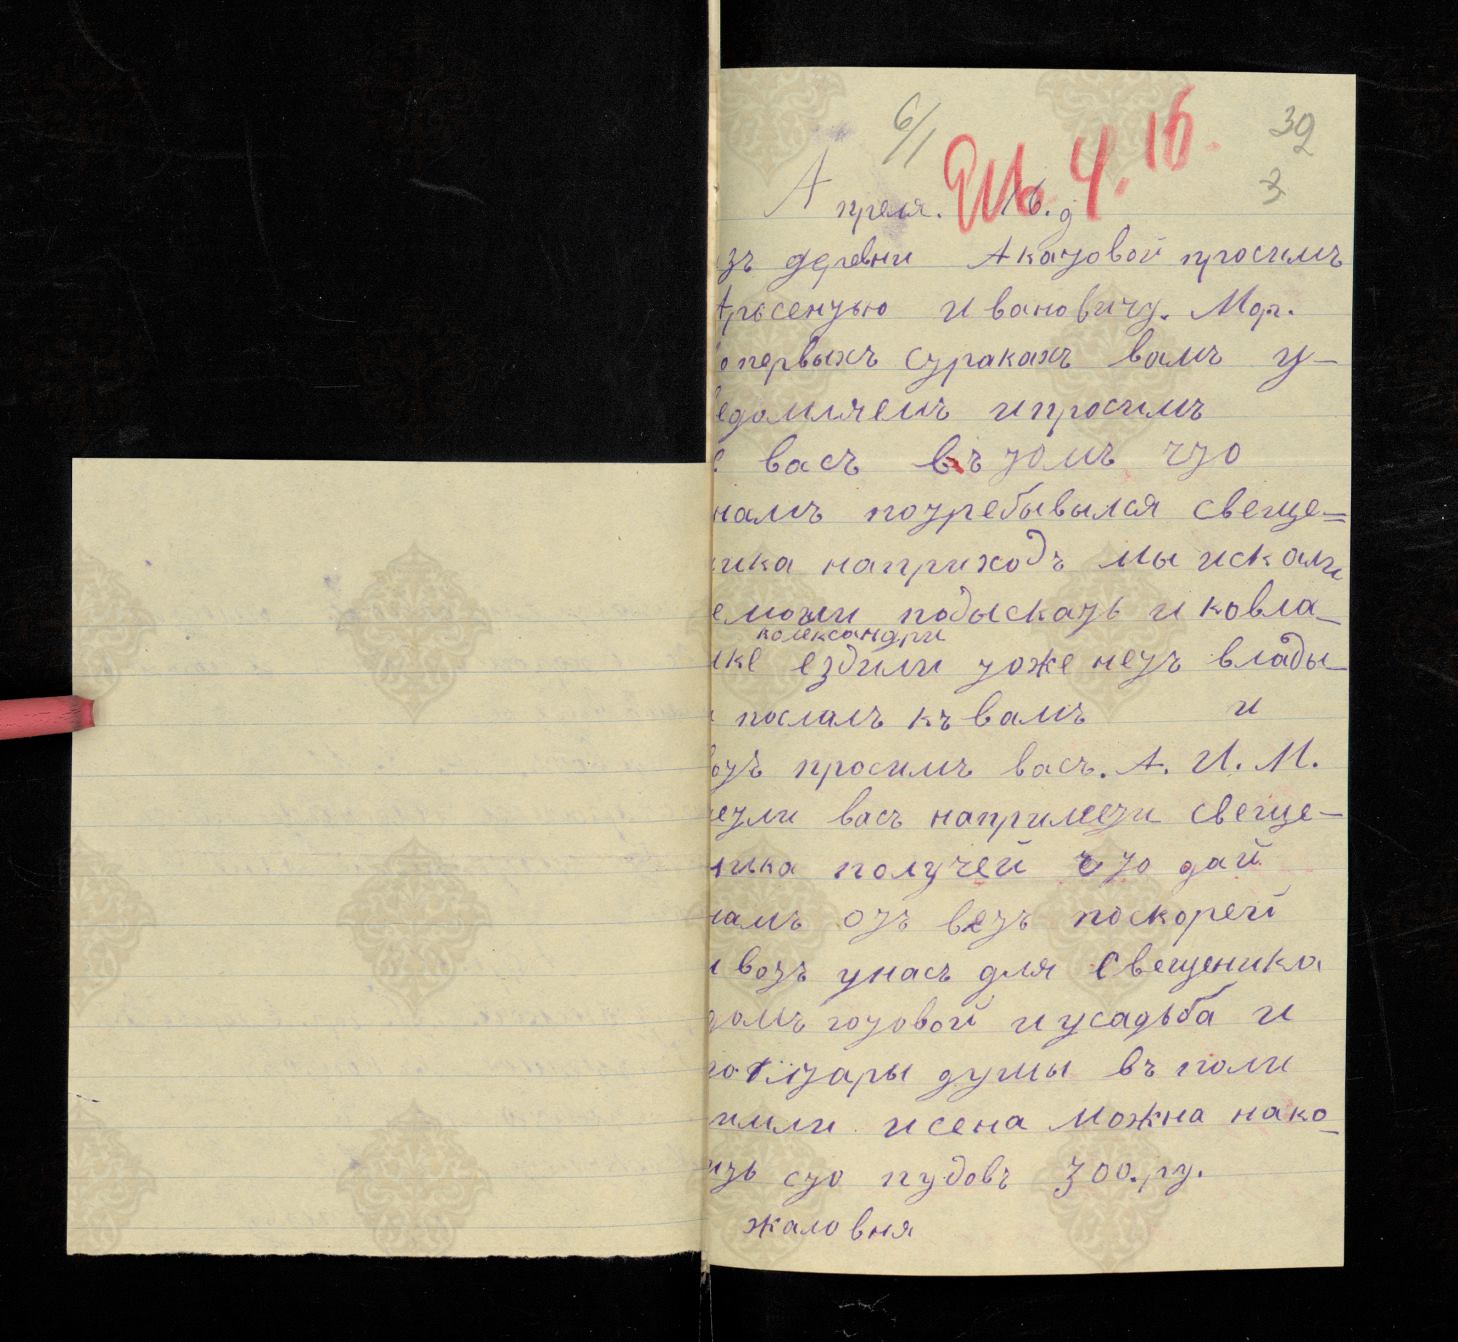 6/1
39
3
4. 16.
Апреля. 16. д
зъ деревни Аказовой просимъ
Арьсентью Ивановичу. Мор.
опервыхъ стракахъ вамъ у-
ведомляемъ ипросимъ
васъ въ томъ что
намъ потребывылся свеще=
ника наприходъ мы искали
емогли подыскать и ковла-
колександри
ике ездили тоже нетъ влады-
послалъ къ вамъ и
вотъ просимъ васъ. А. И. М.
нетли васъ наприлети свеще-
ника получей что дай
намъ отъ ветъ поскорей
и вотъ унасъ для свещеника
домъ готовой и усадьба и
душы въ поли
имли исена можна нако-
ить сто пудовъ 300. ру.
жаловня